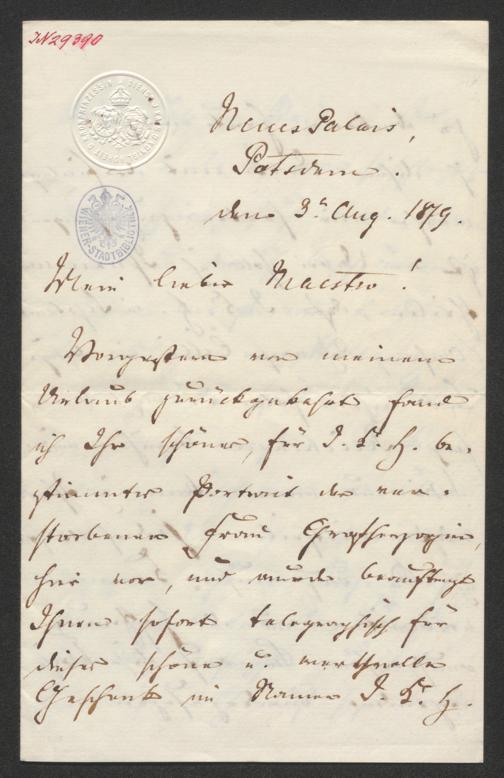 IN 29390
WIENER STADTBIBLIOTHEK
Neues Palais,
Potsdam.
den 3t Aug. 1879.
Mein lieber Maestro!
Vorgestern von meinem
Urlaub zurückgekehrt fand
ich Ihr schönes, für I. K. H. be-
stimmtes Portrait der ver-
storbenen Frau Großherzogin,
hier vor, und wurde beauftragt
Ihnen sofort telegraphisch für
dieses schöne u. werthvolle
Geschenk im Namen I. K. H.